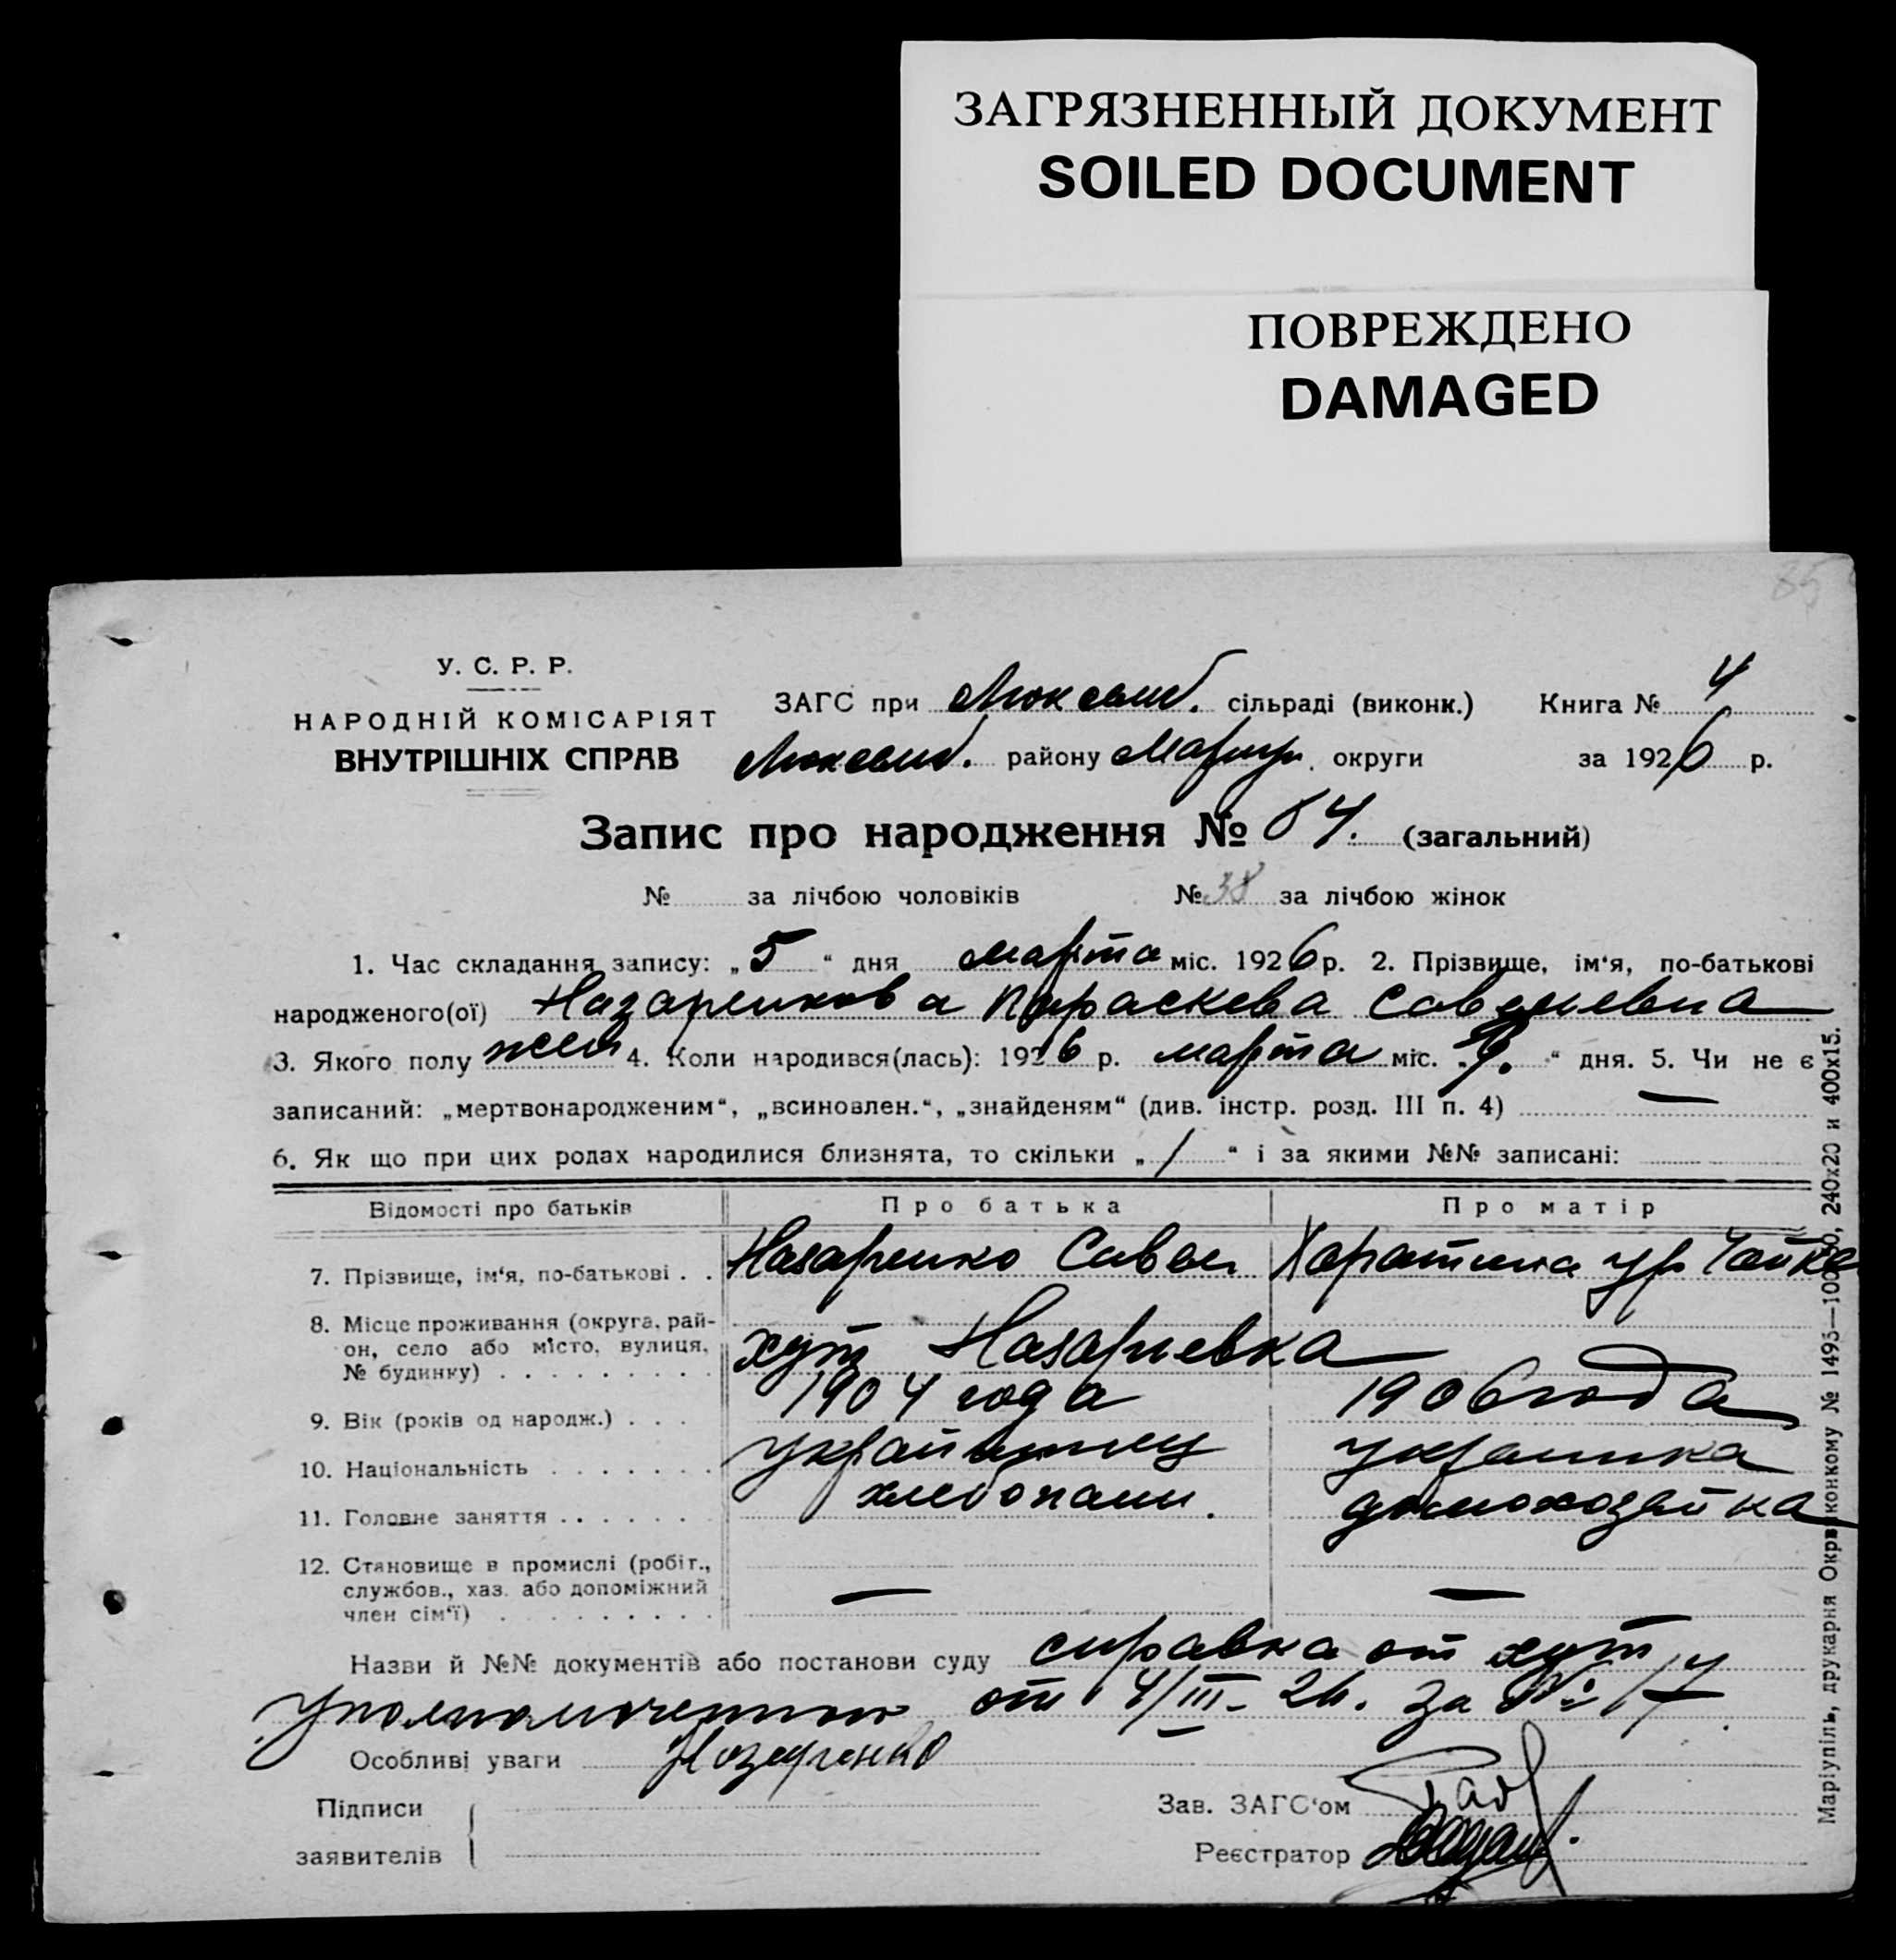 ЗАГРЯЗНЕННЫЙ ДОКУМЕНТ
SOILED DOCUMENT
ПОВРЕЖДЕНО
DAMAGED
85
У. С. Р. Р.
НАРОДНІЙ КОМІСАРІЯТ
ВНУТРІШНІХ СПРАВ
ЗАГС при Люксемб. сільраді (виконк.) Книга № 4
Люксемб. району Мариуп. округи за 1926 р.
Запис про народження № 64. (загальний)
№ за лічбою чоловіків № 38 за лічбою жінок
1. Час складання запису: „5“ дня марта міс. 1926 р. 2. Прізвище, ім‘я, по-батькові
народженого(ої) Назаренкова Параскева Савельевна
3. Якого полу жен 4. Коли народився(лась): 1926 р. марта міс. „ “ дня. 5. Чи не є
записаний: „мертвонародженим“, „всиновлен.“, „знайденям“ (див. інстр. розд. III п. 4) —
6. Як що при цих родах народилися близнята, то скільки „1“ і за якими №№ записані:
Відомості про батьків Про батька Про матір
7. Прізвище, ім‘я, по-батькові . . Назаренко Савел Харатина ур Чайка
8. Місце проживання (округа, рай-
он, село або місто, вулиця,
№ будинку) . . . . . . . . . хут Назарьевка
9. Вік (років од народж.) . . . 1904 года 1906 года
10. Національність . . . . . . . украйинец украинка
11. Головне заняття . . . . . . хлебопаш. домохозяйка
12. Становище в промислі (робіт.,
службов., хаз. або допоміжний
член сім‘ї) . . . . . . . . . — —
Назви й №№ документів або постанови суду справка от хут
уполномоченного от 4/III-26. за № 17
Особливі уваги Назаренко
Підписи
заявителів
Зав. ЗАГС‘ом
Реєстратор
Маріупіль, друкарня Окрвиконкому № 1495—100 50, 240х20 и 400х15.